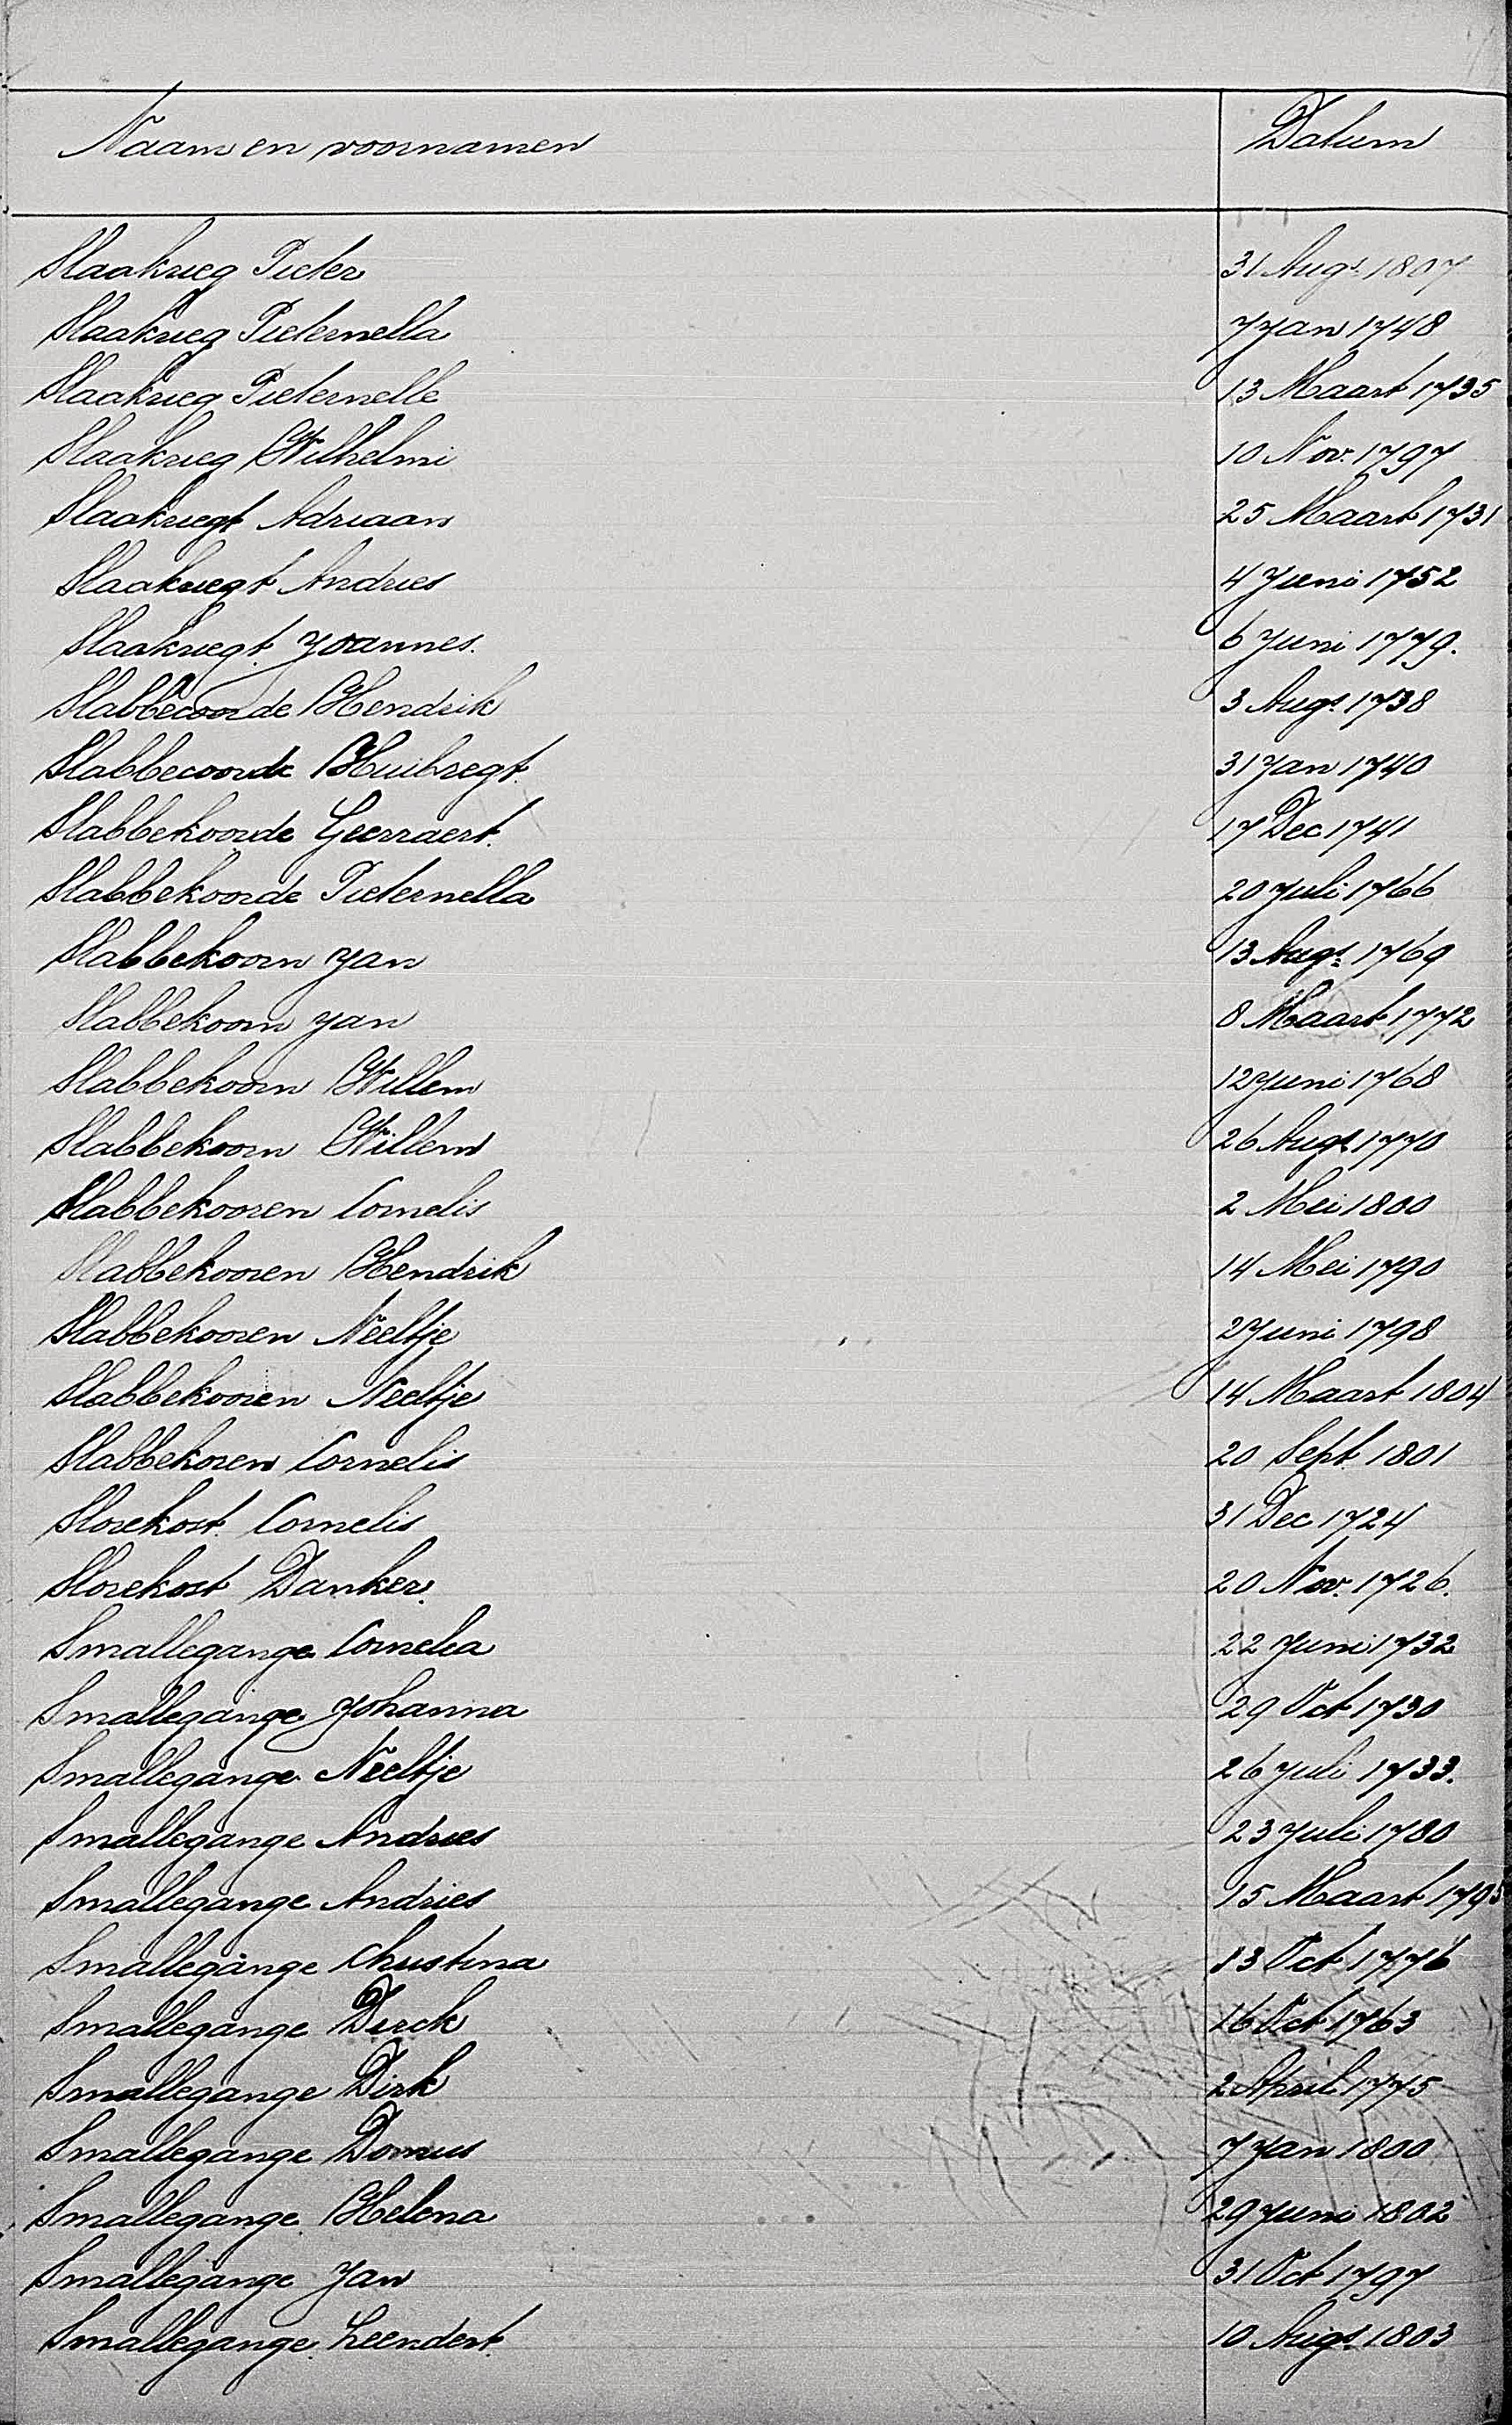 Naam en voornamen Datum
Slaakrieg Pieter 31 Augs. 1807
Slaakrieg Pieternella 7 Jan 1748
Slaakrieg Pieternelle 13 Maart 1735
Slaakrieg Wilhelmi 10 Nov. 1797
Slaakriegt Adriaan 25 Maart 1731
Slaakriegt Andries 4 Juni 1752
Slaakriegt Joannes. 6 Juni 1779.
Slabbecoorde Hendrik 3 Augs. 1738
Slabbecoorde Huibregt. 31 Jan 1740
Slabbekoorde Geerraert. 17 Dec 1741
Slabbekoorde Pieternella 20 Juli 1766
Slabbekoorn Jan 13 Augs. 1769
Slabbekoorn Jan 8 Maart 1772
Slabbekoorn Willem 12 Juni 1768
Slabbekoorn Willem 26 Augs. 1770
Slabbekooren Cornelis 2 Mei 1800
Slabbekooren Hendrik 14 Mei 1790
Slabbekooren Neeltje 2 Juni 1798
Slabbekooren Neeltje 14 Maart 1804
Slabbekoren Cornelis 20 Sept. 1801
Slorekost. Cornelis 31 Dec 1724
Slorekost Danker. 20 Nov. 1726.
Smallegange Cornelia 22 Juni 1732
Smallegange Johanna 29 Oct 1730
Smallegange Neeltje 26 Juli 1733.
Smallegange Andries 23 Juli 1780
Smallegange Andries 15 Maart 1795
Smallegange Christina 13 Oct 1776
Smallegange Dirck 16 Oct 1763
Smallegange Dirk 2 April 1775
Smallegange Domus 7 Jan 1800
Smallegange Helena 29 Juni 1802
Smallegange Jan 31 Oct 1797
Smallegange Leendert. 10 Augs. 1803